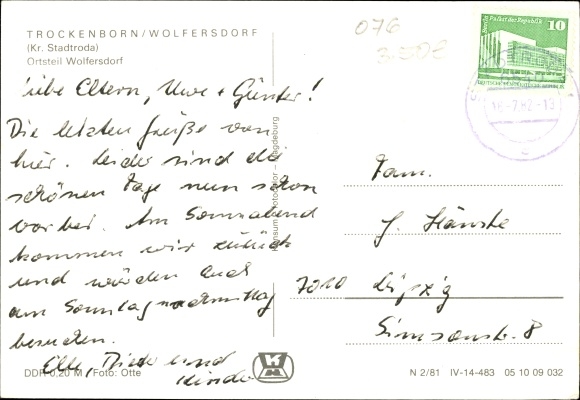 TROCKENBORN/WOLFERSDORF
(Kr. Stadtroda)
Ortsteil Wolfersdorf
Liebe Eltern, Uwe + Günter!
Die letzten Grüße von
hier. Leider sind die
schönen Tage nun schon
vorbei. Am Sonnabend
kommen wir zurück
und würden Euch
am Sonntagnachmittag
besuchen.
Elle, Dieter und
Kinder
DDR 0,20 M Foto: Otte
076
Berlin Palast der Republik
10
18.-7.82-13
Fam.
7010 Leipzig
Simsonstr. 8
N 2/81 IV-14-483 05 10 09 032